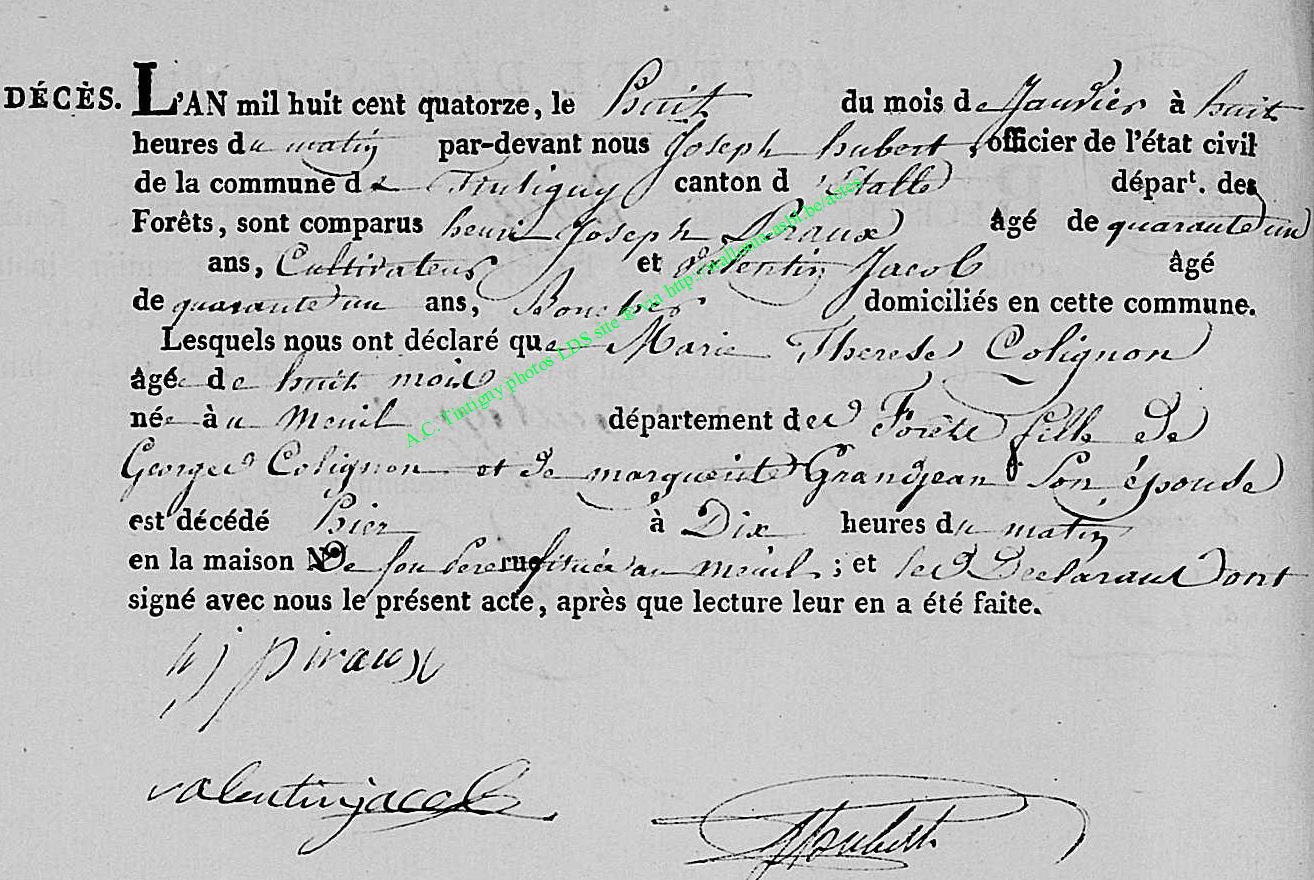 DÉCÈS. L'AN mil huit cent quatorze, le huit du mois de Janvier à huit
heures du matin par-devant nous Joseph hubert, officier de l'état civil
de la commune de Tintigny canton d'Etalleépar<sup>t</sup>. des
Forêts, sont comparus henri Joseph Piraux âgé de quarante un
ans, Cultivateur et Valentin Jacob âgé
de quarante un ans, Boucher domiciliés en cette commune.
Lesquels nous ont déclaré que Marie Therese Colignon
âgée de huit mois
née à u Menil département des Forêts fille de
George Colignon et de marguerite Grandjean Son épouse
est décédé hier à Dix heures du matin
en la maison De son Pere rue située au menil ; et les Declarans ont
signé avec nous le présent acte, après que lecture leur en a été faite.
h j piraux
valentin jacob
JHubert
A.C. Tintigny photos LDS site & via http://wallonia-asbl.be/actes